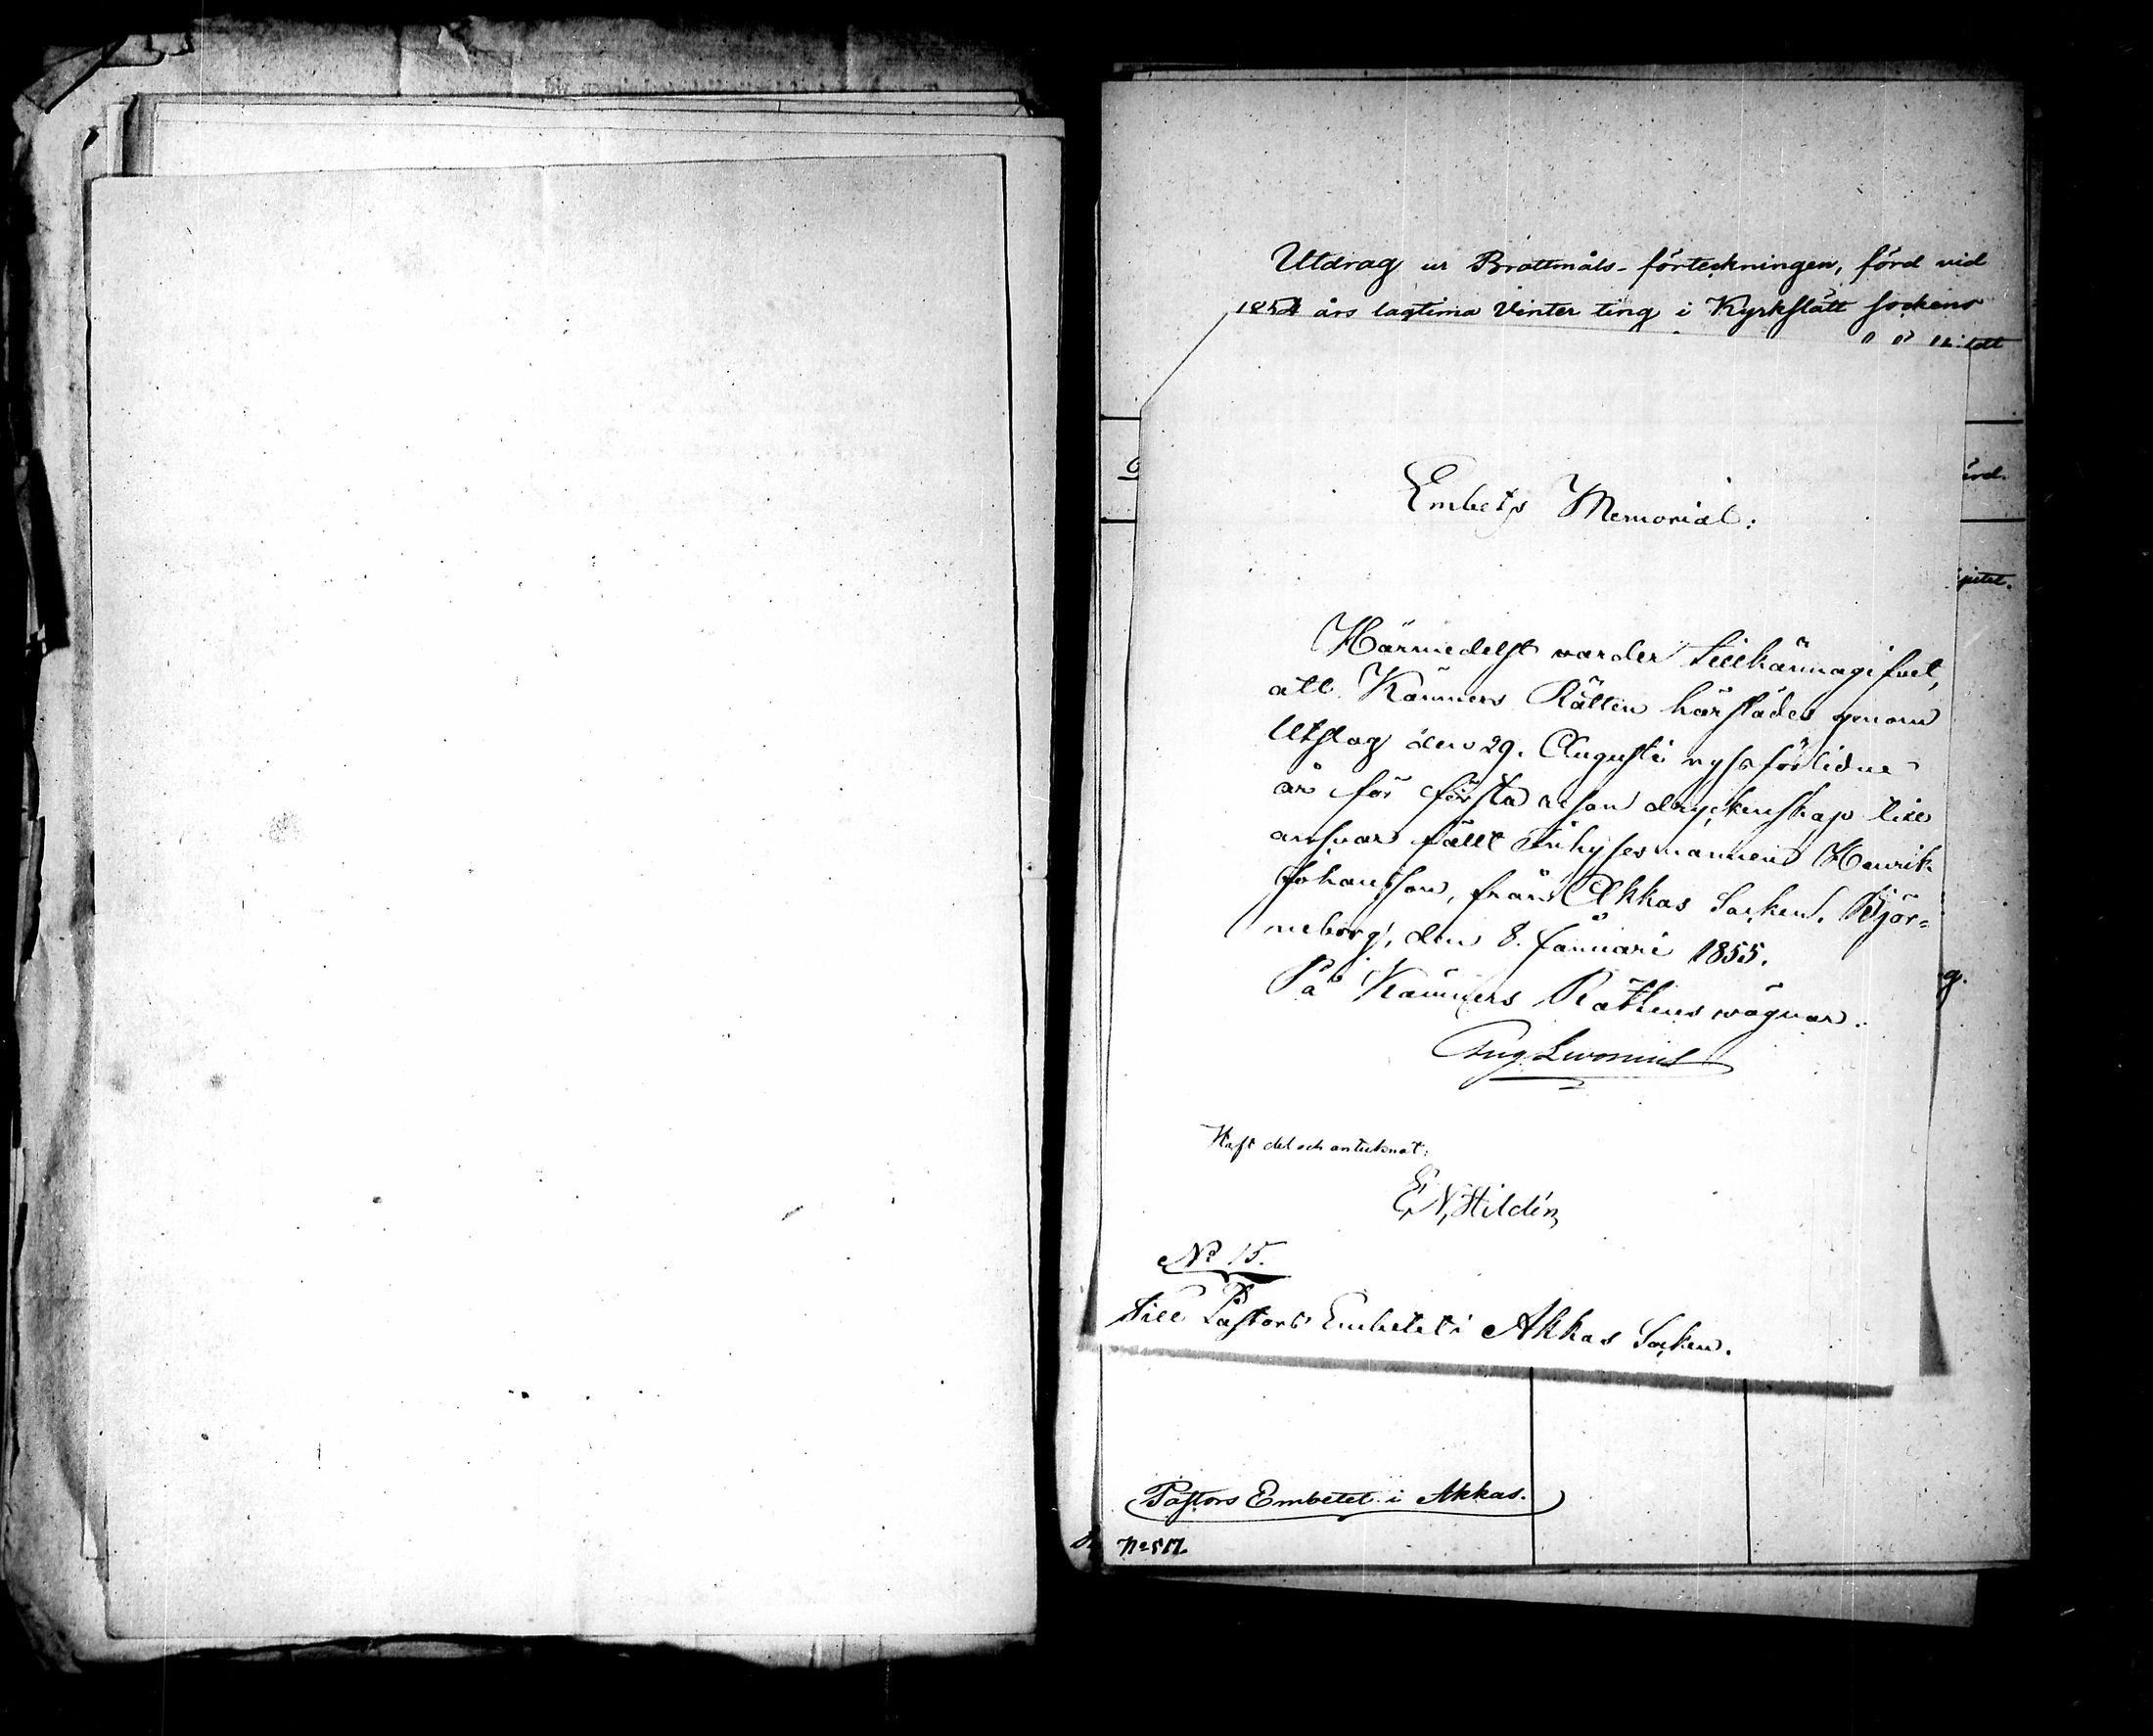 Utdrag ur Brottmåls-förteckningen, förd vid
1854 års lagtima Vinter ting i Kyrkslätt sockens
Embets Memorial:
Härmedelst varder tillkännagifvet,
att Kämners Rätten härstädes genom
Utslag den 29. Augusti nyss förlidne
år för första resan dryckenskap till
ansvar fällt Inhyses mannen Henrik
Johansson, från Akkas Socken. Björ-
neborg, den 8. Januari 1855.
På Kämners Rättens vägnar:
Aug. Livonius
Haft del och antecknat:
E. N. Hildén
No 15.
Till Pastors Embetet i Akkas Socken.
Pastors Embetet i Akkas.